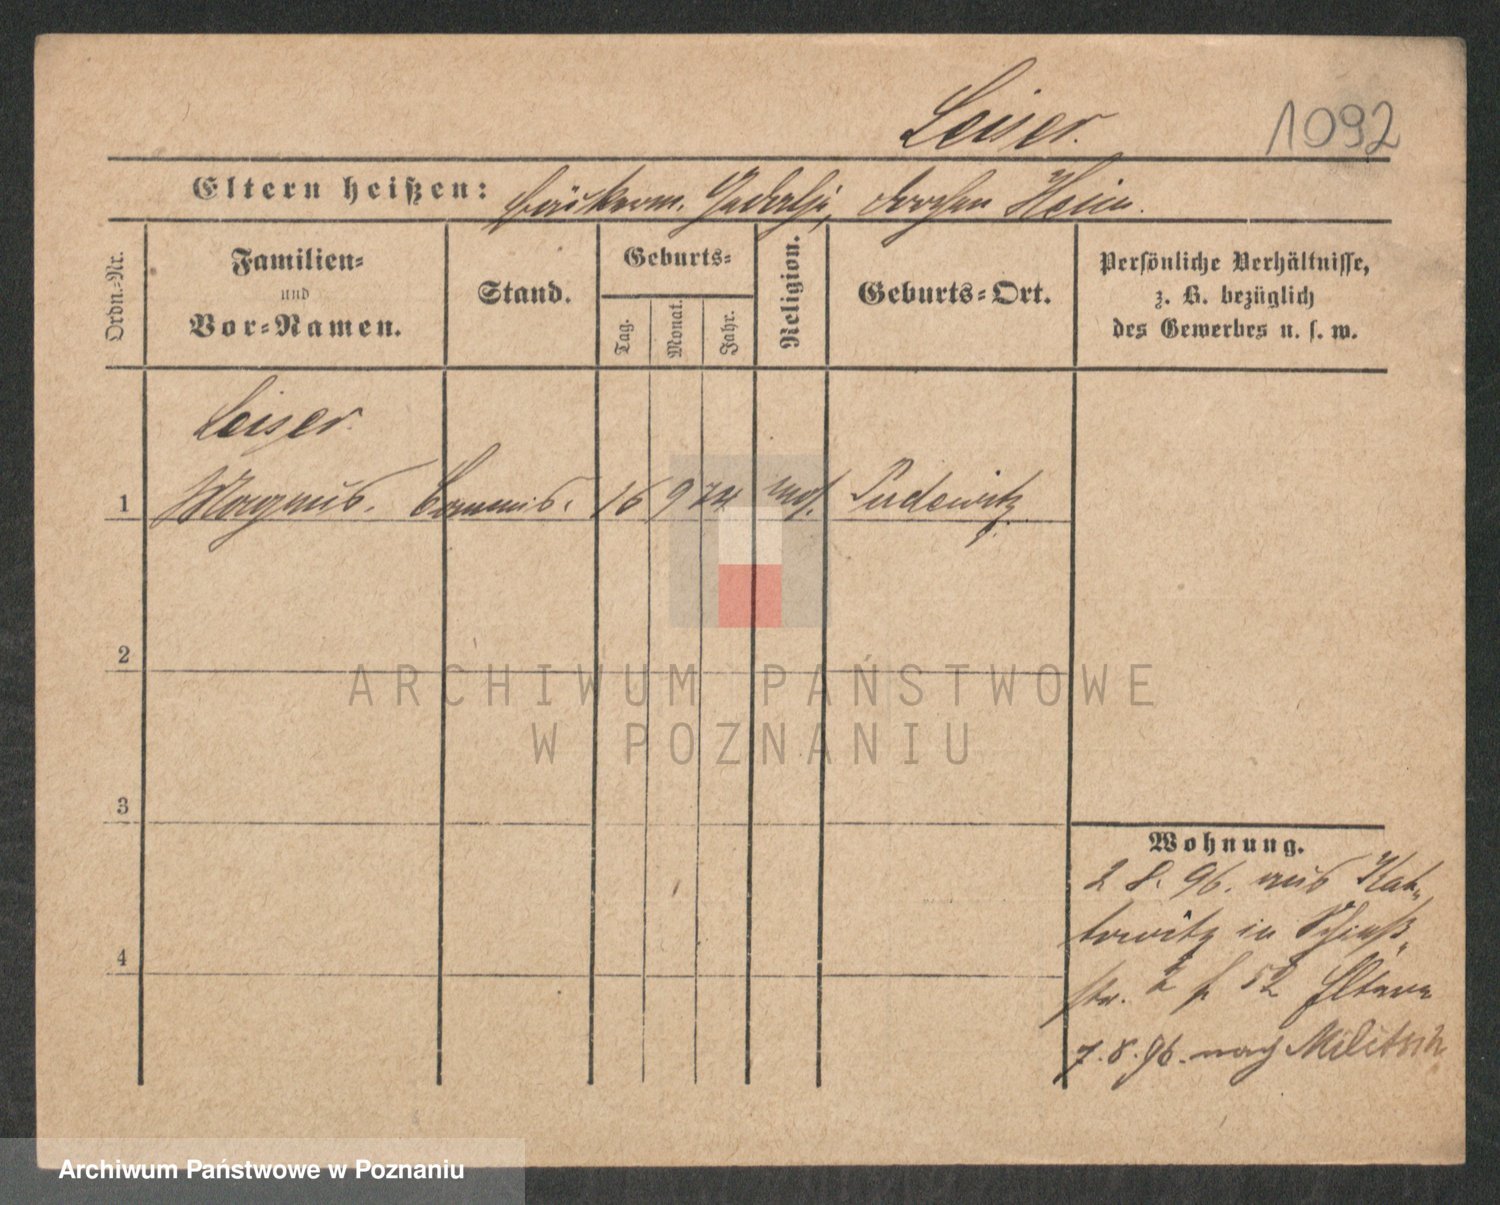 Leiser. 1092
Eltern heißen: Gedalje, Heim.
Ordn.-Nr.
Familien-
und
Vor-Namen.
Stand.
Geburts-
Tag.
Monat.
Jahr.
Religion.
Geburts-Ort.
Persönliche Verhältnisse,
z. B. bezüglich
des Gewerbes u. s. w.
Leiser
1 Magnus. Commis. 16 9 74 mos. Pudewitz
2
3
4
Wohnung.
2 8. 96. aus Kat-
towitz in Schieß-
str. 2 52 Eltern
7. 8. 96. nach Militsch
ARCHIWUM PAŃSTWOWE
W POZNANIU
Archiwum Państwowe w Poznaniu